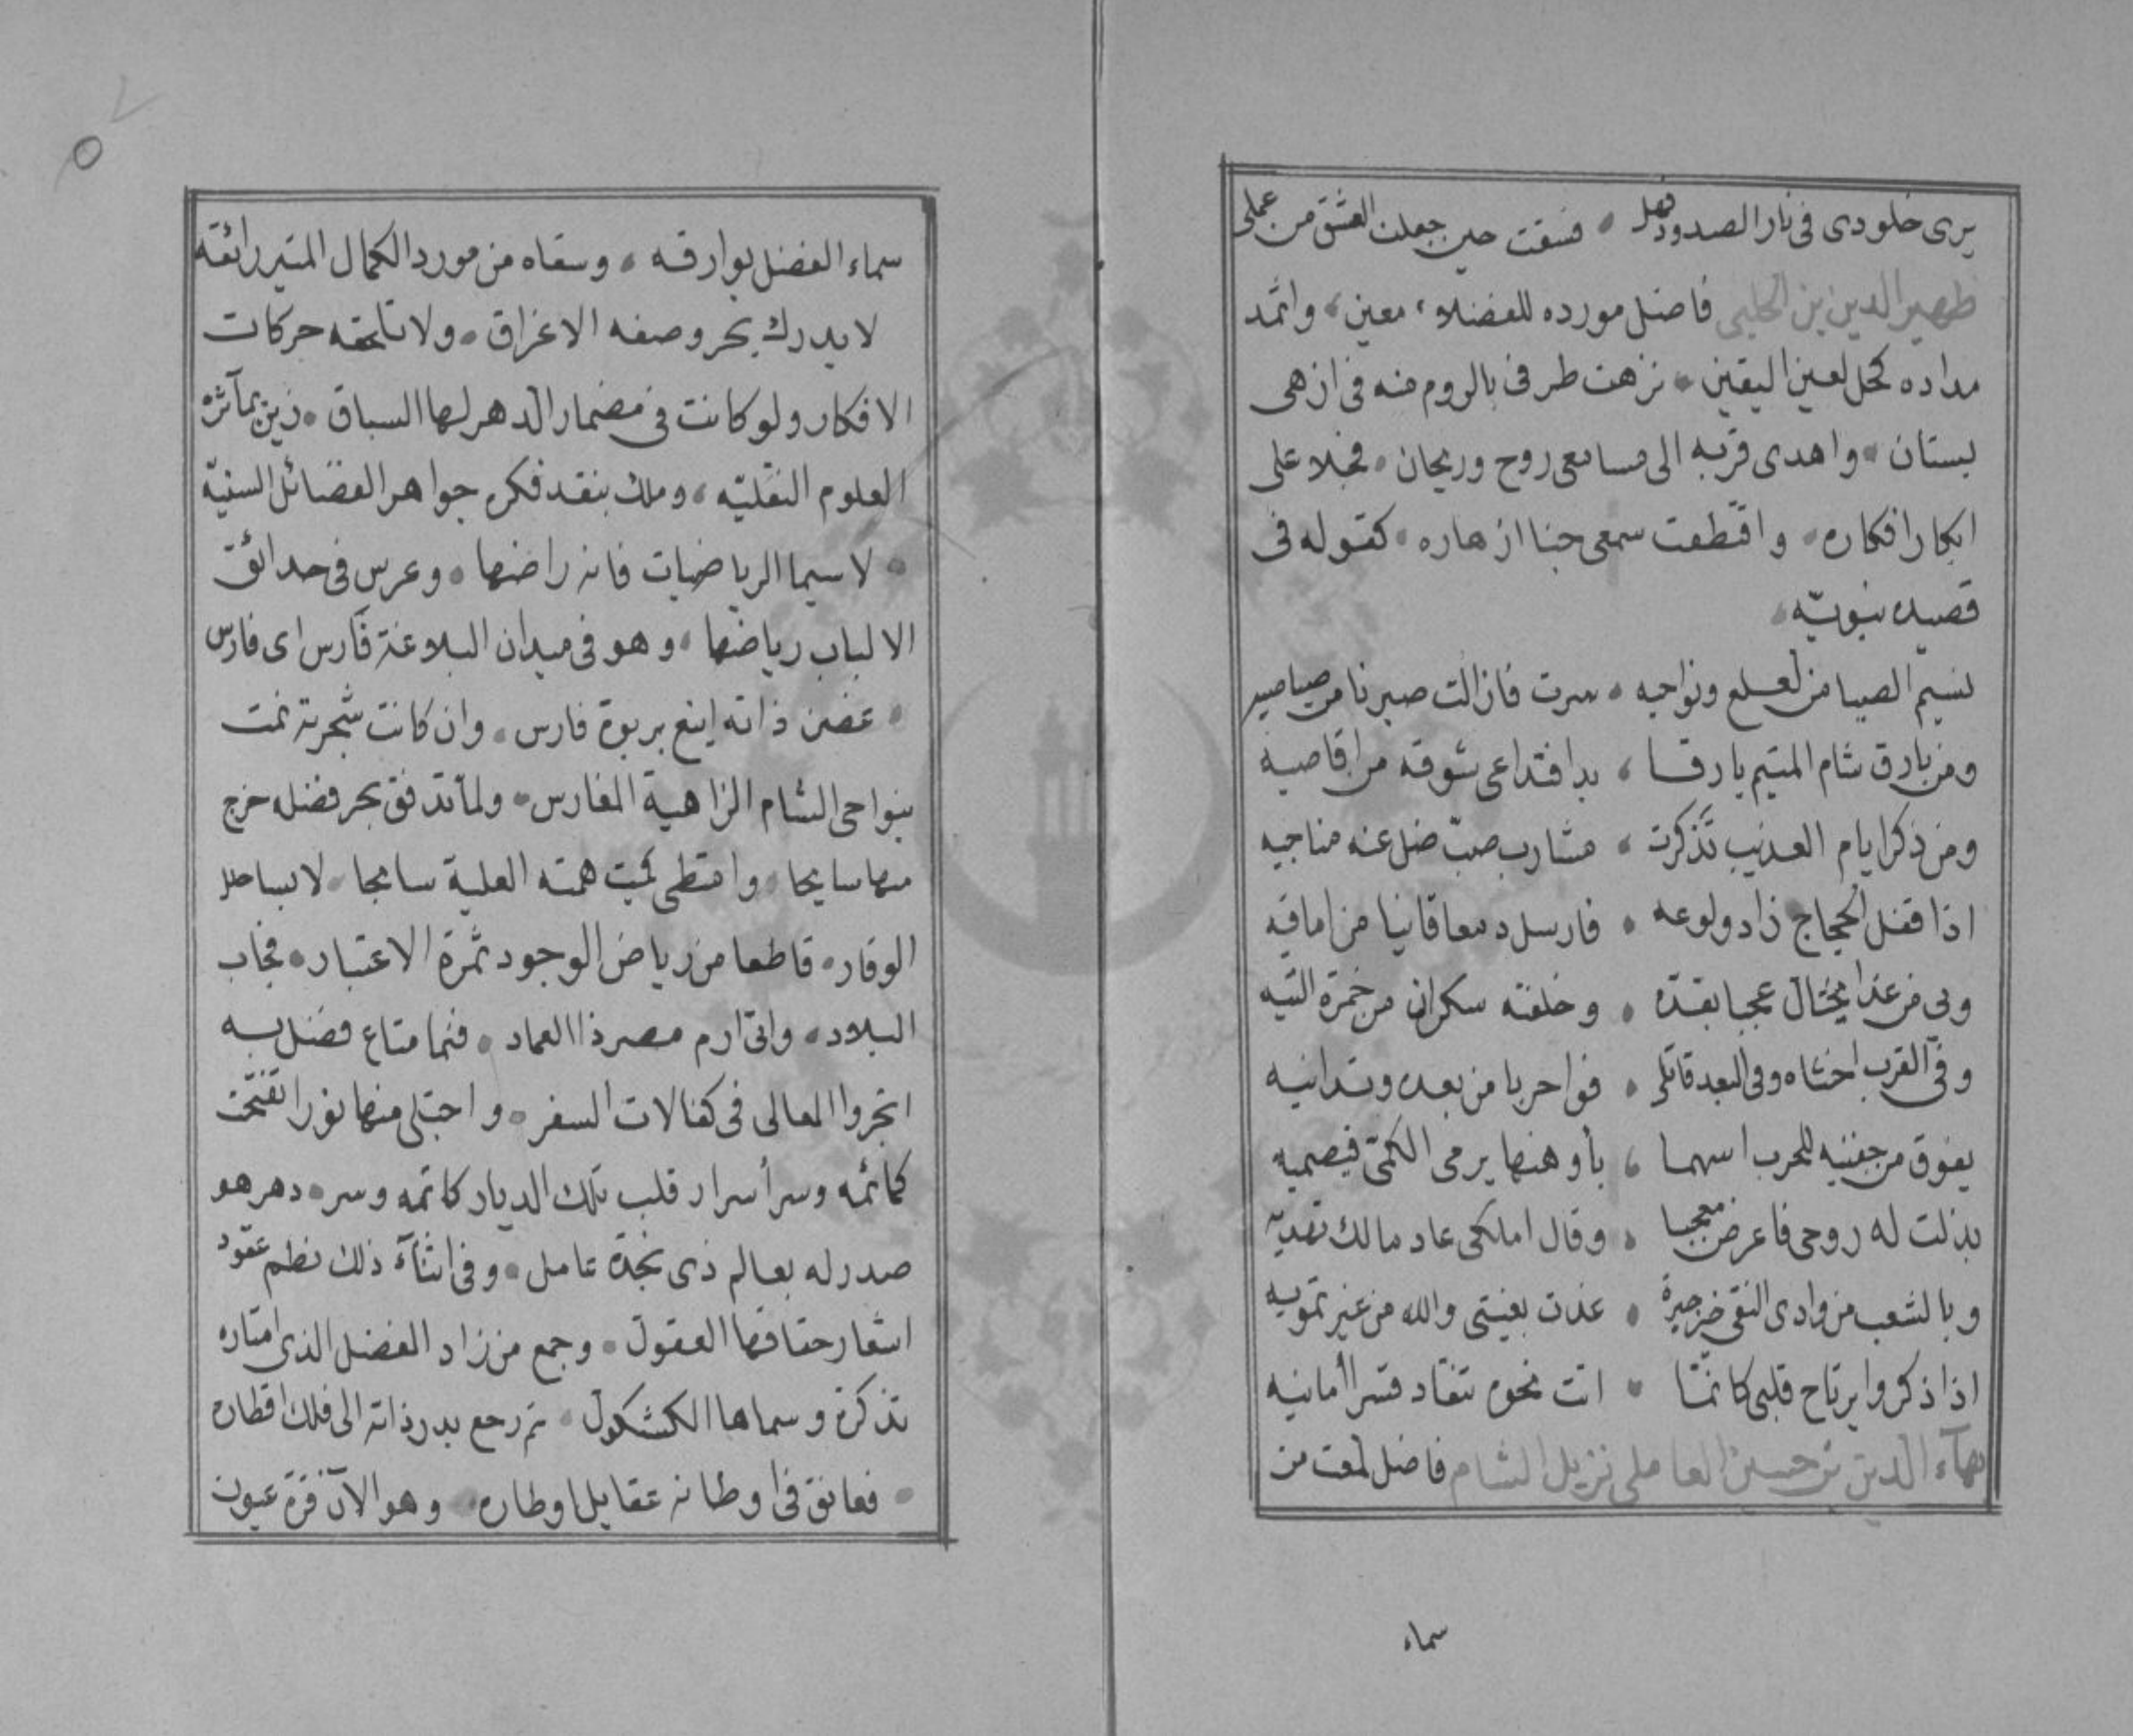 يرى خلودى فى نار الصدود فهل • فسقت حين جعلت العشق من عملى
ظهير الدين بن الحلبى فاضل مورده للفضلاء معين، واثمد
مداده كحل لعين اليقين • نزهت طرفى بالروم منه فى ازهى
بستان • واهدى قربه الى مسامعى روح وريحان • فجلا على
ابكار افكاره • واقتطفت سمعى جنا ازهاره • كقوله فى
قصيده نبويّه •
نسيم الصبا من لعلع ونواحيه • سرت فازالت صبرنا من صياصيه
ومن بارق شام المتيم بارقا ، بدا فتداعى شوقه من اقاصيه
ومن ذكر ايام العذيب تذكرت ، مشارب صبّ ضل عنه مناجيه
اذا قفل الحجاج زاد ولوعه • فارسل دمعا قانيا من اماقيه
وبى من غدا يختال عجبا بقدّه • وخلفته سكران من خمرة التيه
وفى القرب اخشاه وفى البعد قاتلى • فواحربا من بعده وتدانيه
يفوق من جفنيه للحرب اسهما ، بأوهنها يرمى الكمىّ فيصميه
بذلت له روحى فاعرض معجبا • وقال املكى عاد مالك تهديه
وبالشعب من وادى النقى خير جيرة • غدت بغيتى والله من غير تمويه
اذا ذكروا يرتاح قلبى كانّما • اتت نحوه تنقاد قسرا امانيه
بهآء الدين بن حسين العاملى نزيل الشام فاضل لمعت من
سماء
سماء الفضل بوارقه • وسقاه من مورد الكمال النمير رائقه
لا يدرك بحر وصفه الاغراق • ولا تلحقه حركات
الافكار ولو كانت فى مضمار الدهر لها السباق • زين بمآثره
العلوم النقليّه ، وملك بنقد فكره جواهر الفضائل السنيّه
• لاسيما الرياضيات فانه راضها • وغرس فى حدائق
الالباب رياضها • وهو فى ميدان البلاغة فارس اى فارس
• غصن ذاته اينع بربوة فارس • وان كانت شجرته نمت
بنواحى الشام الزاهية المغارس • ولما تدفق بحر فضله خرج
منها سايحا • وامتطى كميت همته العلية سابحا • لابسا حلل
الوقار • قاطعا من رياض الوجود ثمرة الاعتبار • فجاب
البلاد • واتى ارم مصر ذا العماد • فنما متاع فضل به
اتجروا المعالى فى كفالات السفر • واجتلى منها نورا تفتحت
كمائمه وسرأسرار قلب تلك الديار كاتمه وسره دهر هو
صدر له بعالم ذى نجدة عامل • وفى اثنآء ذلك نظم عقود
اشعار حقاقها العقول • وجمع من زاد الفضل الذى امتاره
تذكرة وسماها الكشكول • ثم رجع بدر ذاته الى فلك اقطاره
• فعانق فى اوطانه عقايل اوطاره • وهو الآن قرة عيون